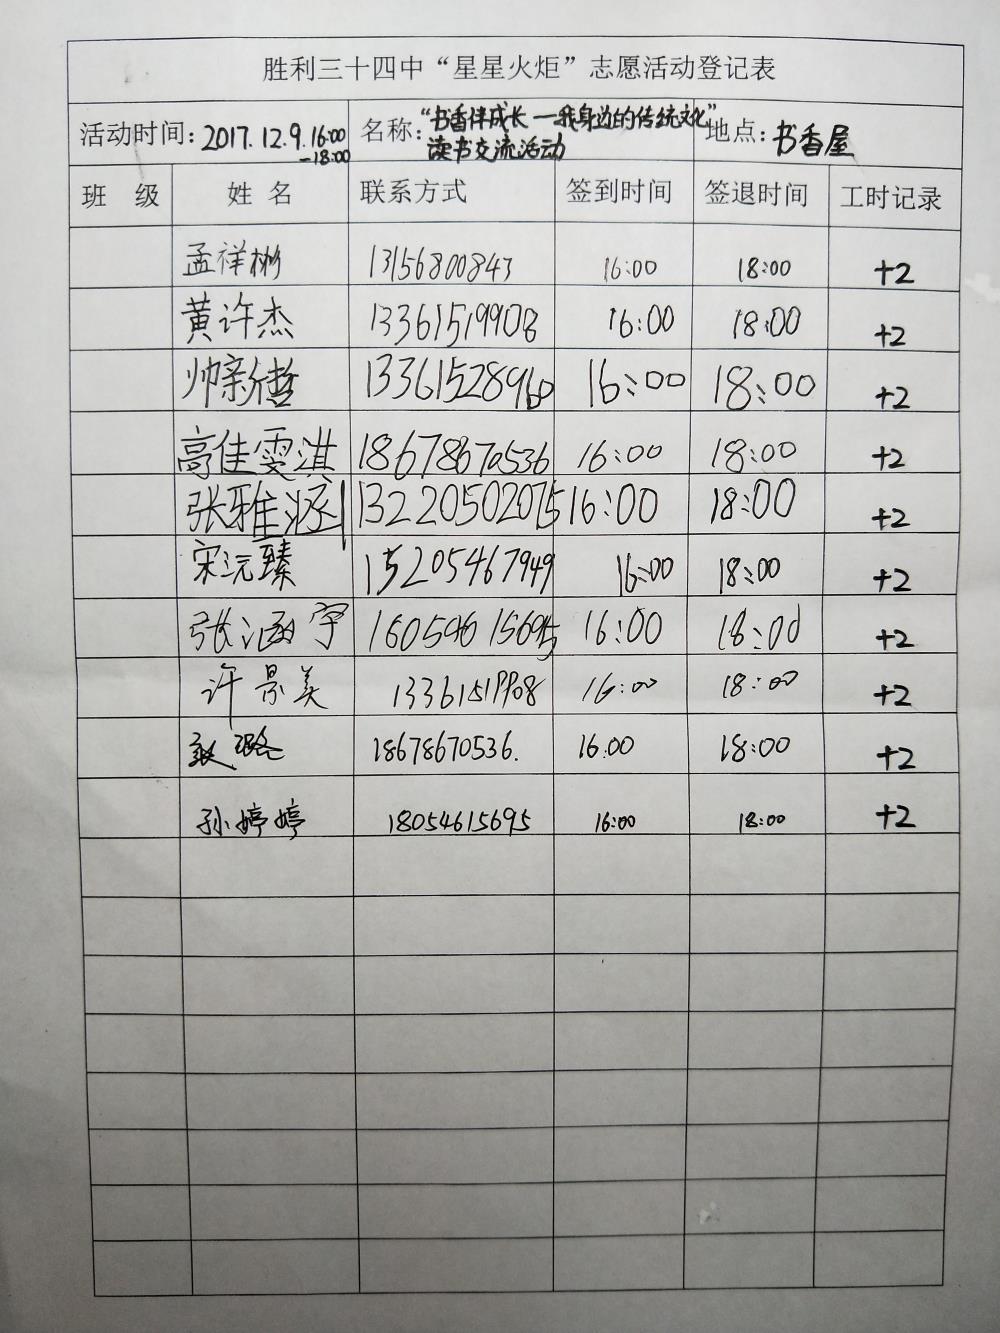 胜利三十四中“星星火炬”志愿活动登记表
活动时间：2017.12.9.16:00-18:00 名称：“书香伴成长—我身边的传统文化”读书交流活动 地点：书香屋
班 级 姓 名 联系方式 签到时间 签退时间 工时记录
孟祥彬 13156800843 16:00 18:00 +2
黄许杰 13361519908 16:00 18:00 +2
帅新哲 13361528960 16:00 18:00 +2
高佳雯淇 18678670536 16:00 18:00 +2
张雅涵 13220502075 16:00 18:00 +2
宋沅臻 15205467949 16:00 18:00 +2
张涵宇 16:00 18:00 +2
许景美 13361519908 16:00 18:00 +2
璐 18678670536. 16:00 18:00 +2
孙婷婷 18054615695 16:00 18:00 +2